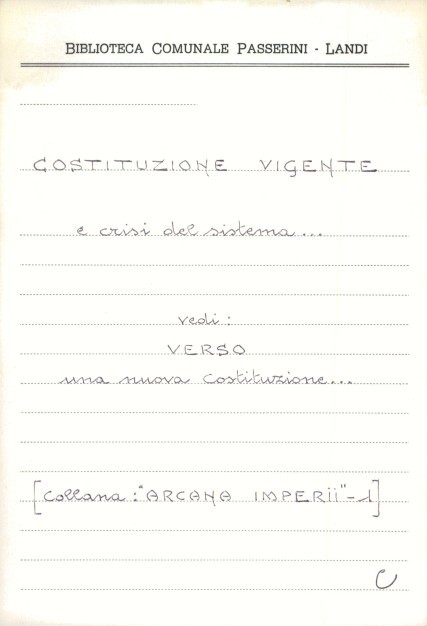 BIBLIOTECA COMUNALE PASSERINI - LANDI
COSTITUZIONE VIGENTE
e crisi del sistema...
vedi:
VERSO
una nuova costituzione...
[collana: "ARCANA IMPERii" - 1]
C